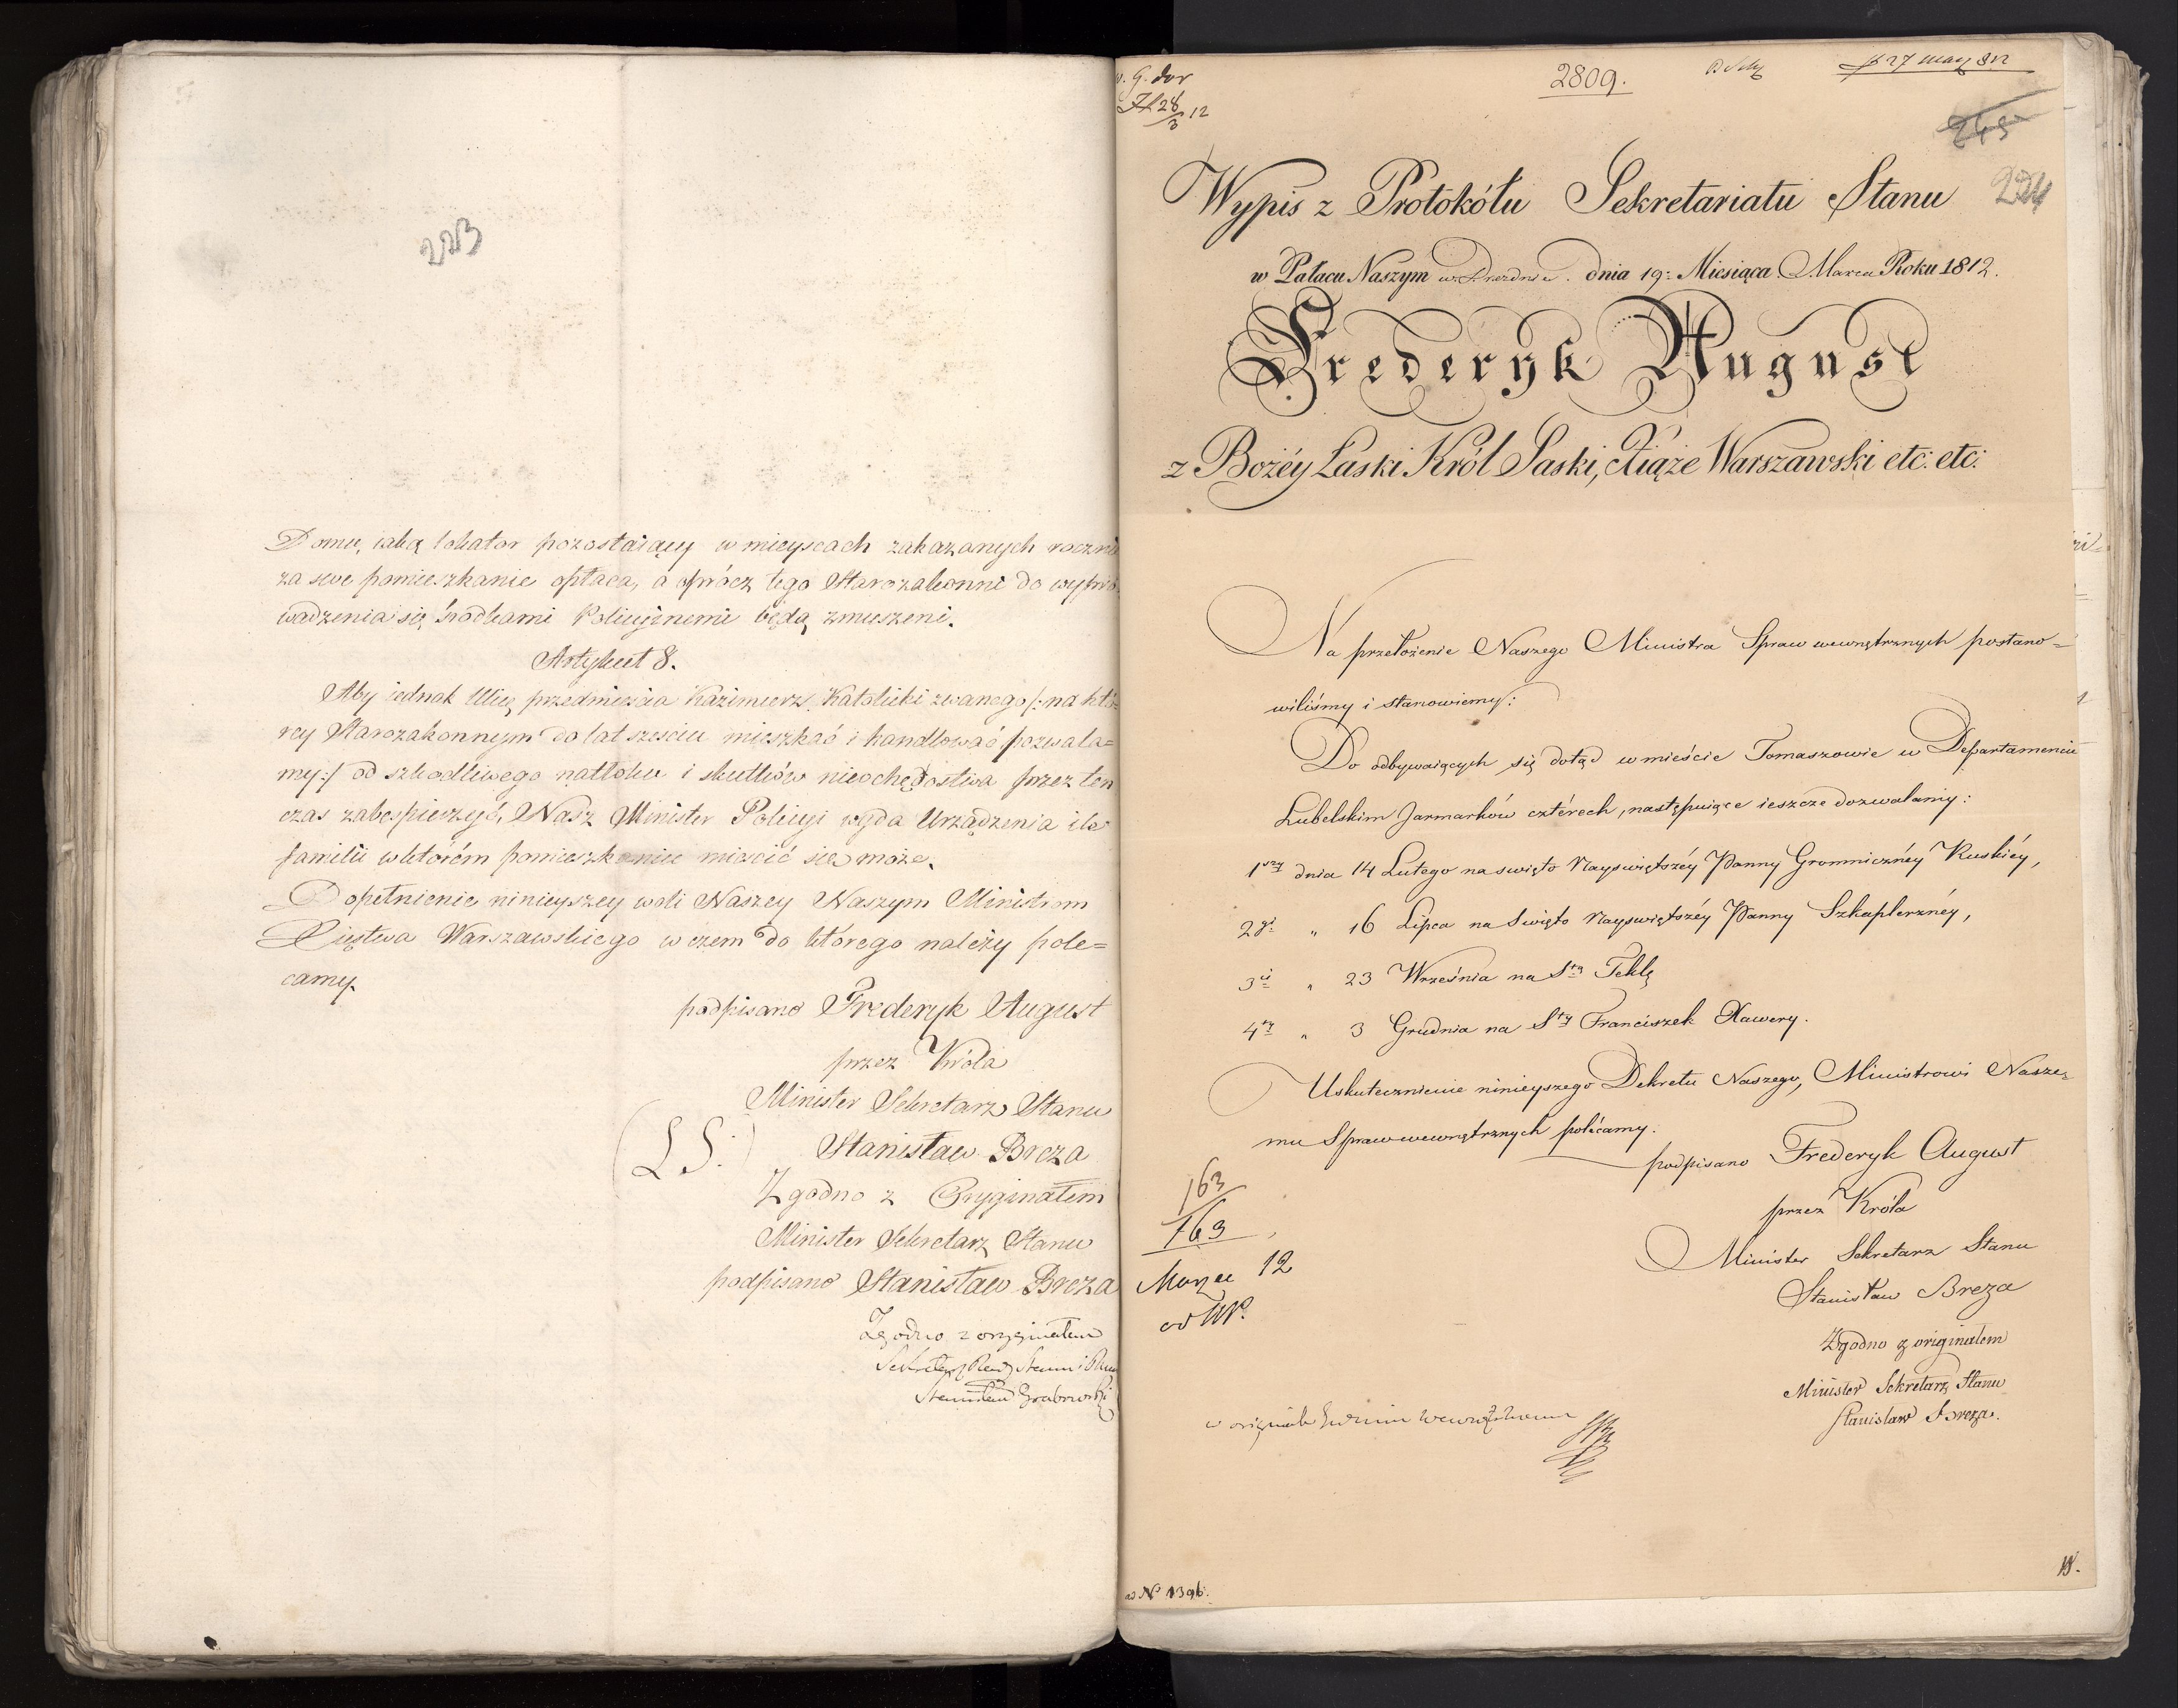 223
Domu, iaką lokator pozostaiący w mieyscach zakazanych roczni
za swe pomieszkanie opłaca, a oprócz tego Starozakonni do wypro-
wadzenia się środkami Policyinemi będą zmuszeni.
Artykuł 8.
Aby iednak Ulicę przedmieścia Kazimierz Katolicki zwanego /: na któ=
rey Starozakonnym do lat sześciu mieszkać i handlować pozwala=
my :/ od szkodliwego natłoku i skutków nieochędostwa przez ten
czas zabespieczyć, Nasz Minister Policyi wyda Urządzenia ile
familii w którém pomieszkaniu mieścić się może.
Dopełnienie ninieyszey woli Naszey Naszym Ministrom
Xięstwa Warszawskiego w czem do którego należy pole=
camy.
podpisano Frederyk August
przez Króla
Minister Sekretarz Stanu
(L.S.) Stanisław Breza
Zgodno z Oryginałem
Minister Sekretarz Stanu
podpisano Stanisław Breza
Zgodno z oryginałem
Sekretarz Rady Stanu i
Stanisław Grabowski
28/3 12
2809.
27 may 812
245
224
Wypis z Protokółu Sekretariatu Stanu
w Pałacu Naszym w Dreznie. dnia 19: Miesiąca Marca Roku 1812.
Frederyk August
z Bożéy Łaski Król Saski, Xiąże Warszawski etc: etc:
Na przełożenie Naszego Ministra Spraw wewnętrznych postano=
wiliśmy i stanowiemy:
Do odbywaiących się dotąd w mieście Tomaszowie w Departamencie
Lubelskim Jarmarków cztérech, następuiące ieszcze dozwalamy:
1szy dnia 14 Lutego na swięto Nayswiętszéy Panny Gromnicznéy Ruskiéy,
2gi „ 16 Lipca na Swięto Nayswiętszéy Panny Szkaplerznéy,
3ci „ 23 Września na Stą Teklę
4ty „ 3 Grudnia na Sty Franciszek Xawery.
Uskutecznienie ninieyszego Dekretu Naszego, Ministrowi Nasze=
mu Spraw wewnętrznych polécamy.
podpisano Frederyk August
przez Króla
Minister Sekretarz Stanu
Stanisław Breza
Zgodno z originałem
Minister Sekretarz Stanu
Stanisław Breza.
163
163
Marzec 12
ad No 1396.